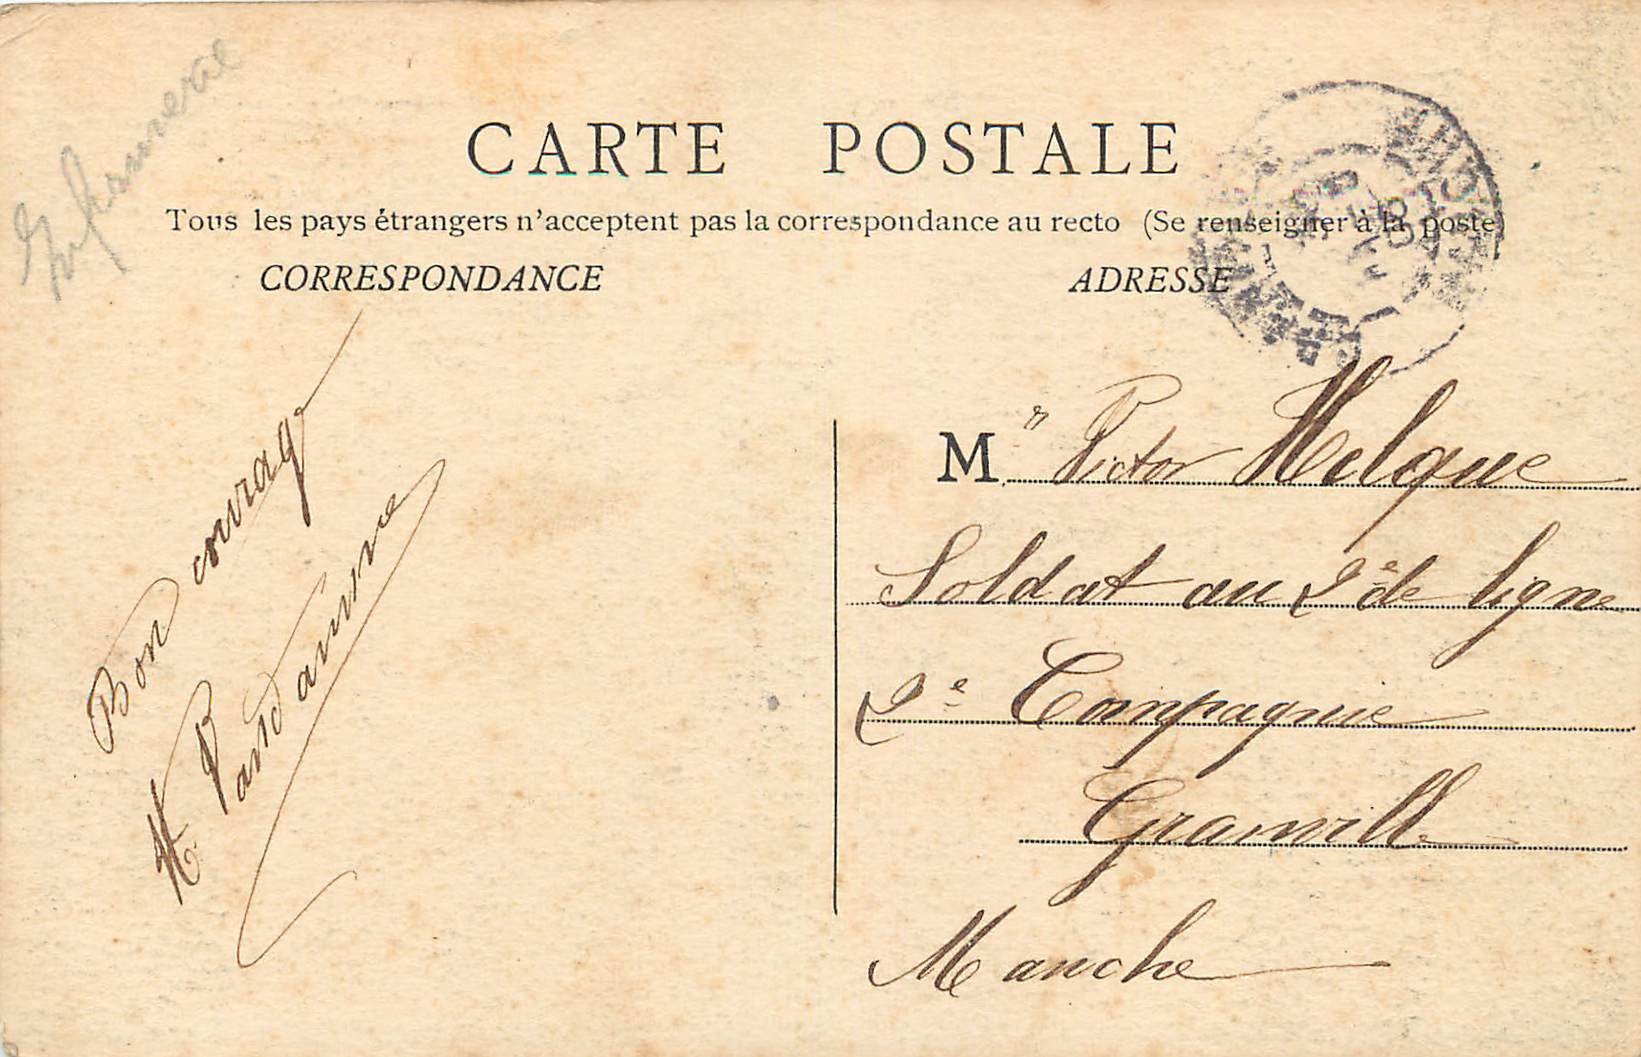 Infirmerie
CARTE POSTALE
Tous les pays étrangers n'acceptent pas la correspondance au recto (Se renseigner à la poste)
CORRESPONDANCE
ADRESSE
Bon courage
H Vandamme
Mr Victor Helque
Soldat au 2e de ligne
2e Compagnie
Granville
Manche